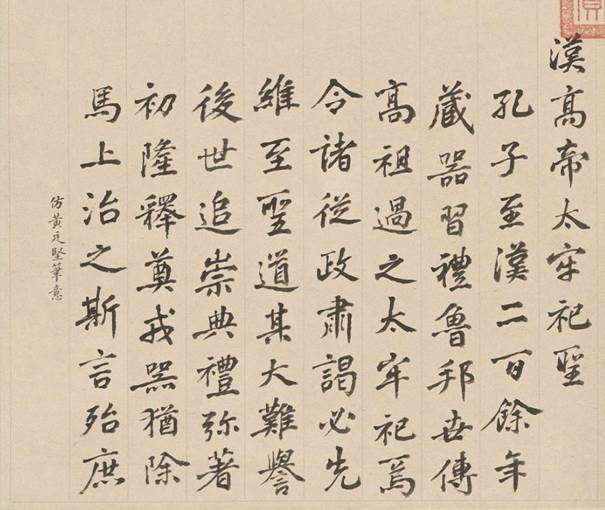 漢高帝太牢祀聖
孔子至漢二百餘年
藏器習禮魯邦世傳
高祖過之太牢祀焉
令諸從政肅謁必先
維至聖道其大難譽
後世追崇典禮弥著
初隆釋奠戎器猶除
馬上治之斯言殆庶
仿黄廷堅筆意